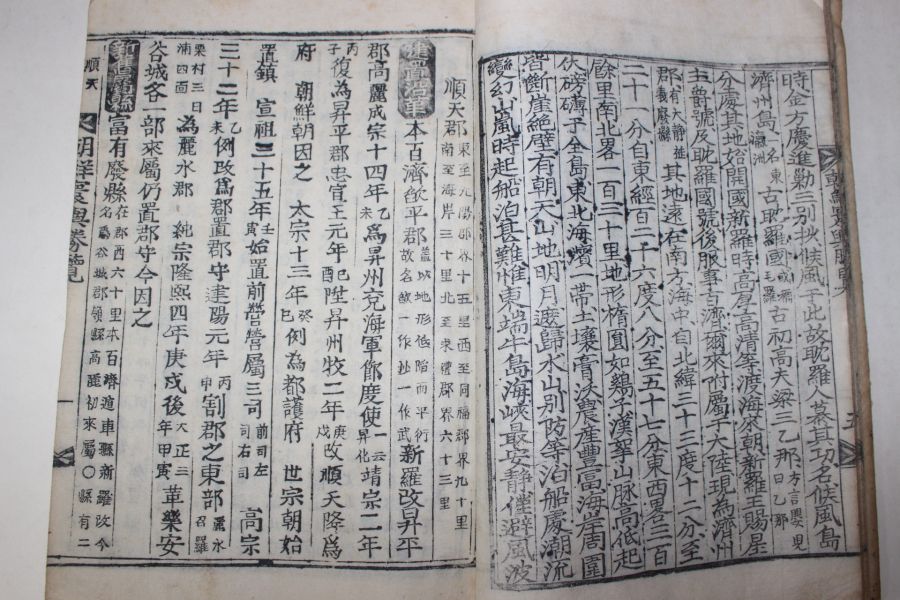 時金方慶進勦三別抄候風于此故耽羅人慕其功名候風島
濟州島一名東瀛洲古耽羅國或稱毛羅國古初高夫梁三乙那方言嬰兒曰乙那
分處其地始開國新羅時高厚高淸等渡海來朝新羅王賜星
主爵號及耽羅國號後服事百濟爾來附屬于大陸現為濟州
郡有大靜旌義廢縣其地遠在南方海中自北緯三十三度十二分至
二十一分自東經百二十六度八分至五十七分東西畧三百
餘里南北畧一百三十里地形楕圓如鷄子漢拏山脉高低起
伏磅礡于全島東北海濱一帶土壤膏沃農産豊富海岸周圍
皆斷崖絶壁有朝天山地明月遮歸水山別防等泊船處潮流
變幻山嵐時起船泊甚難惟東端牛島海峽最安靜催避風波
順天郡東至光陽郡界十五里西至同福郡界九十里南至海岸三十里北至求禮郡界六十三里
建置沿革本百濟欿平郡蓋以地形低陷而平衍故名欿一作抄一作武新羅改昇平
郡高麗成宗十四年乙未為昇州兗海軍節度使一云昇化靖宗二年
丙子復為昇平郡忠宣王元年配陞昇州牧二年庚戌改順天降為
府 朝鮮朝因之 太宗十三年癸巳例為都護府 世宗朝始
置鎭 宣祖三十五年壬寅始置前營營屬三司前司左司右司 高宗
三十二年乙未例改為郡置郡守建陽元年丙申割郡之東部麗水召羅
栗村三日浦四面為麗水郡 純宗隆熙四年庚戌後年大正三甲寅革樂安
谷城各一部來屬仍置郡守今因之
新舊屬縣富有廢縣在郡西六十里本百濟遁支縣新羅改今名為谷城郡領縣高麗初來屬〇縣有二
順天 朝鮮寰輿勝覽 一